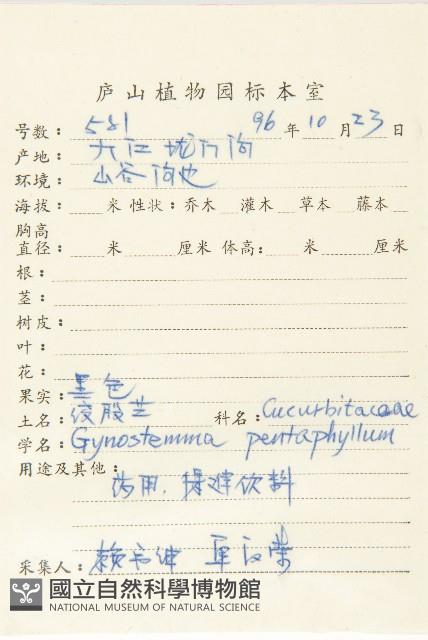 庐山植物园标本室
号数： 581 96 年 10 月 23 日
产地： 九江
环境： 山谷 沟边
海拔： 米 性状： 乔木 灌木 草本 藤本
胸高
直径： 米 厘米 体高： 米 厘米
根：
茎：
树皮：
叶：
花：
果实： 黑色
土名： 绞股兰 科名： Cucurbitaceae
学名： Gynostemma pentaphyllum
用途及其他：
药用. 保健饮料
采集人： 赖书绅
國立自然科學博物館
NATIONAL MUSEUM OF NATURAL SCIENCE